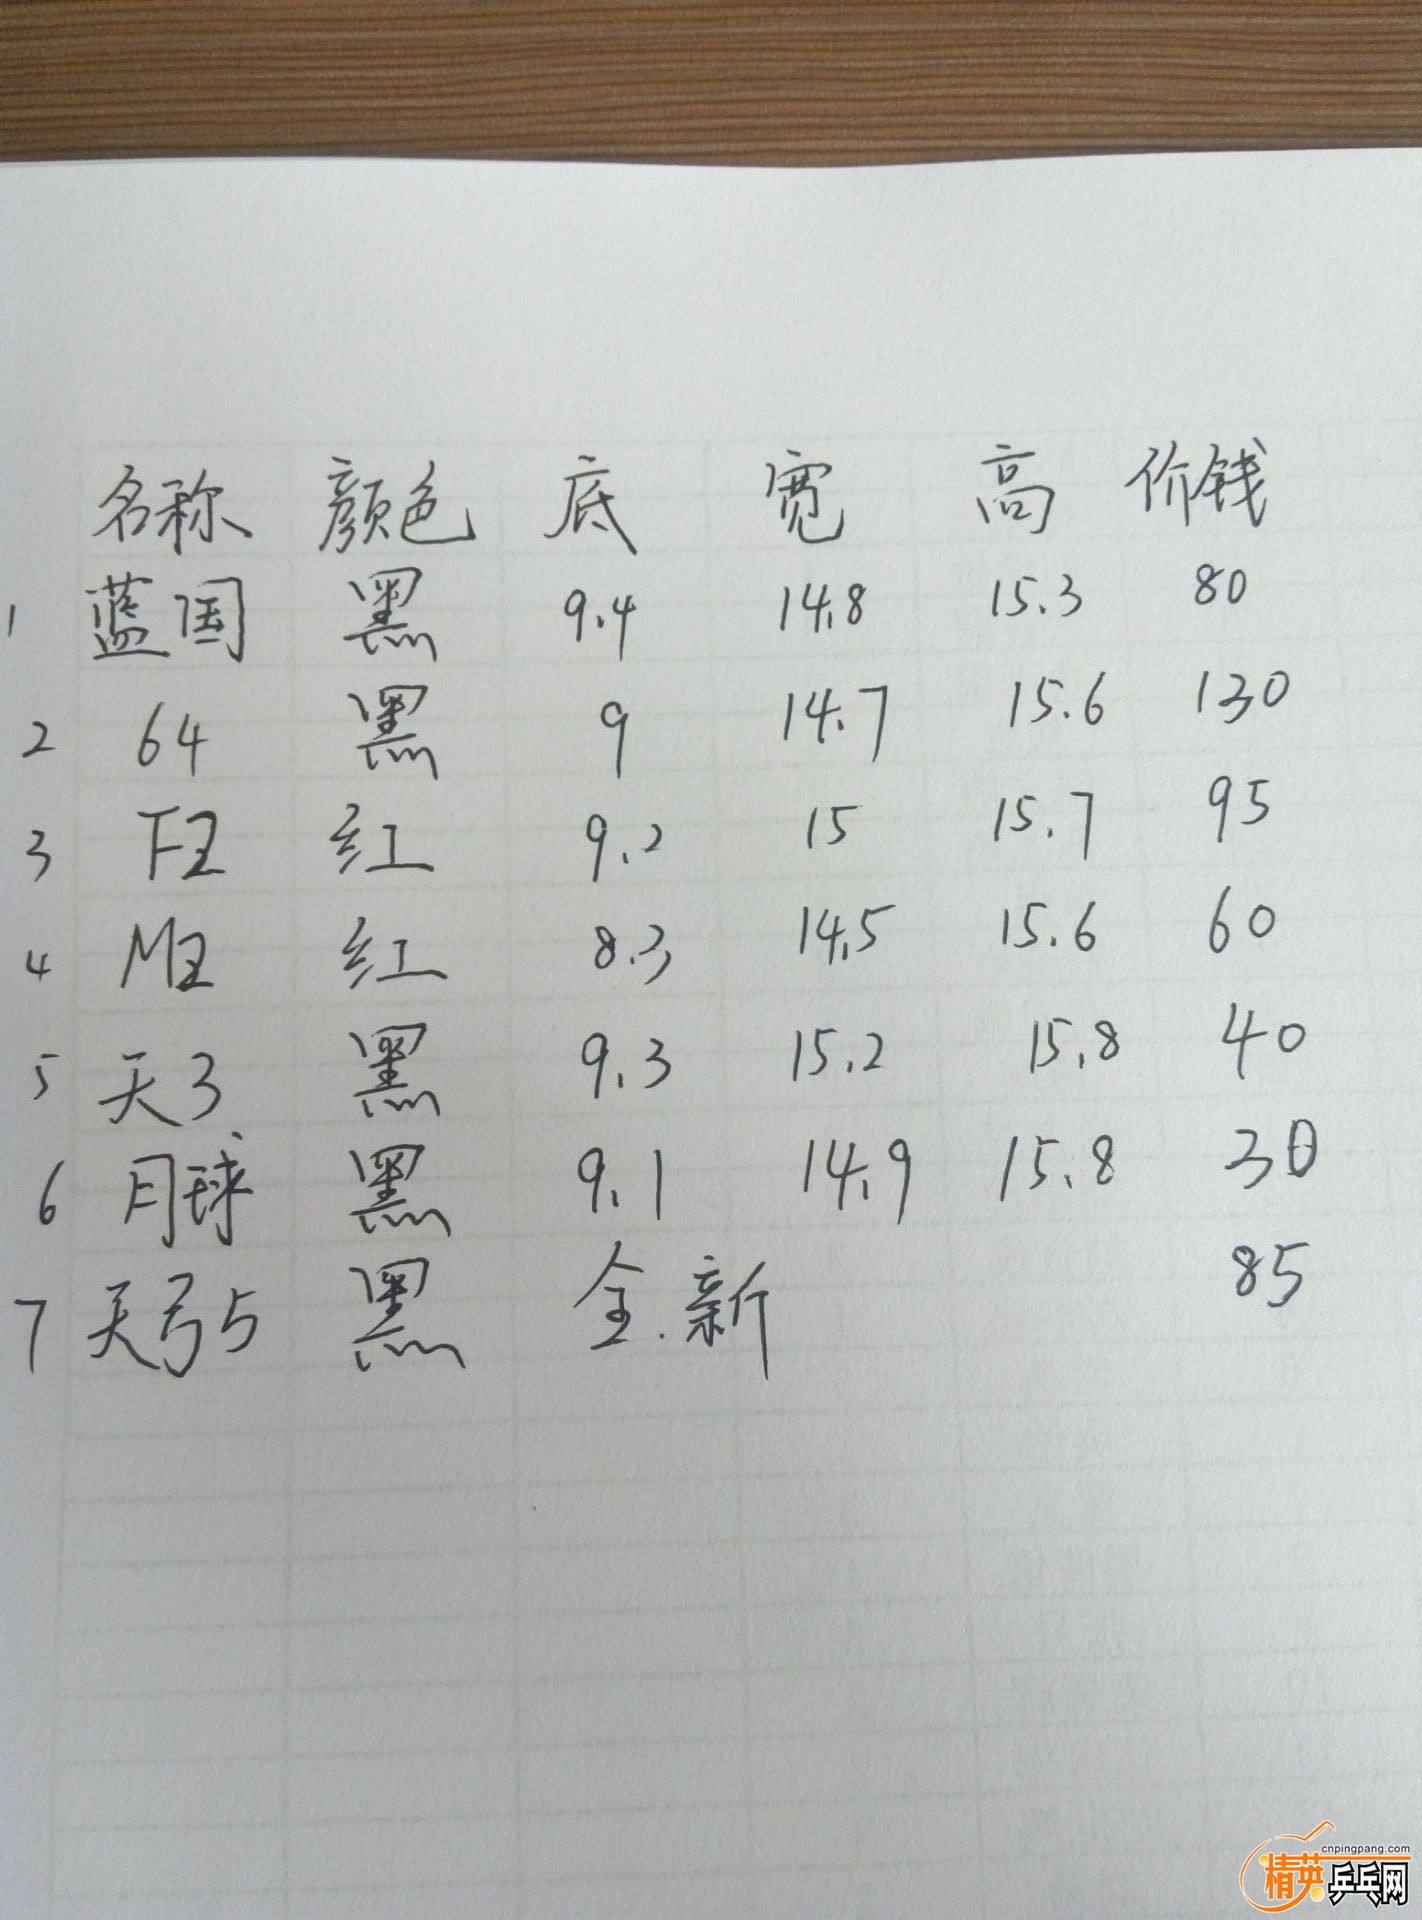 名称 颜色 底 宽 高 价钱
1 蓝国 黑 9.4 14.8 15.3 80
2 64 黑 9 14.7 15.6 130
3 FZ 红 9.2 15 15.7 95
4 MZ 红 8.3 14.5 15.6 60
5 天3 黑 9.3 15.2 15.8 40
6 月球 黑 9.1 14.9 15.8 30
7 天弓5 黑 全新 85
cnpingpang.com
精英乒乓网